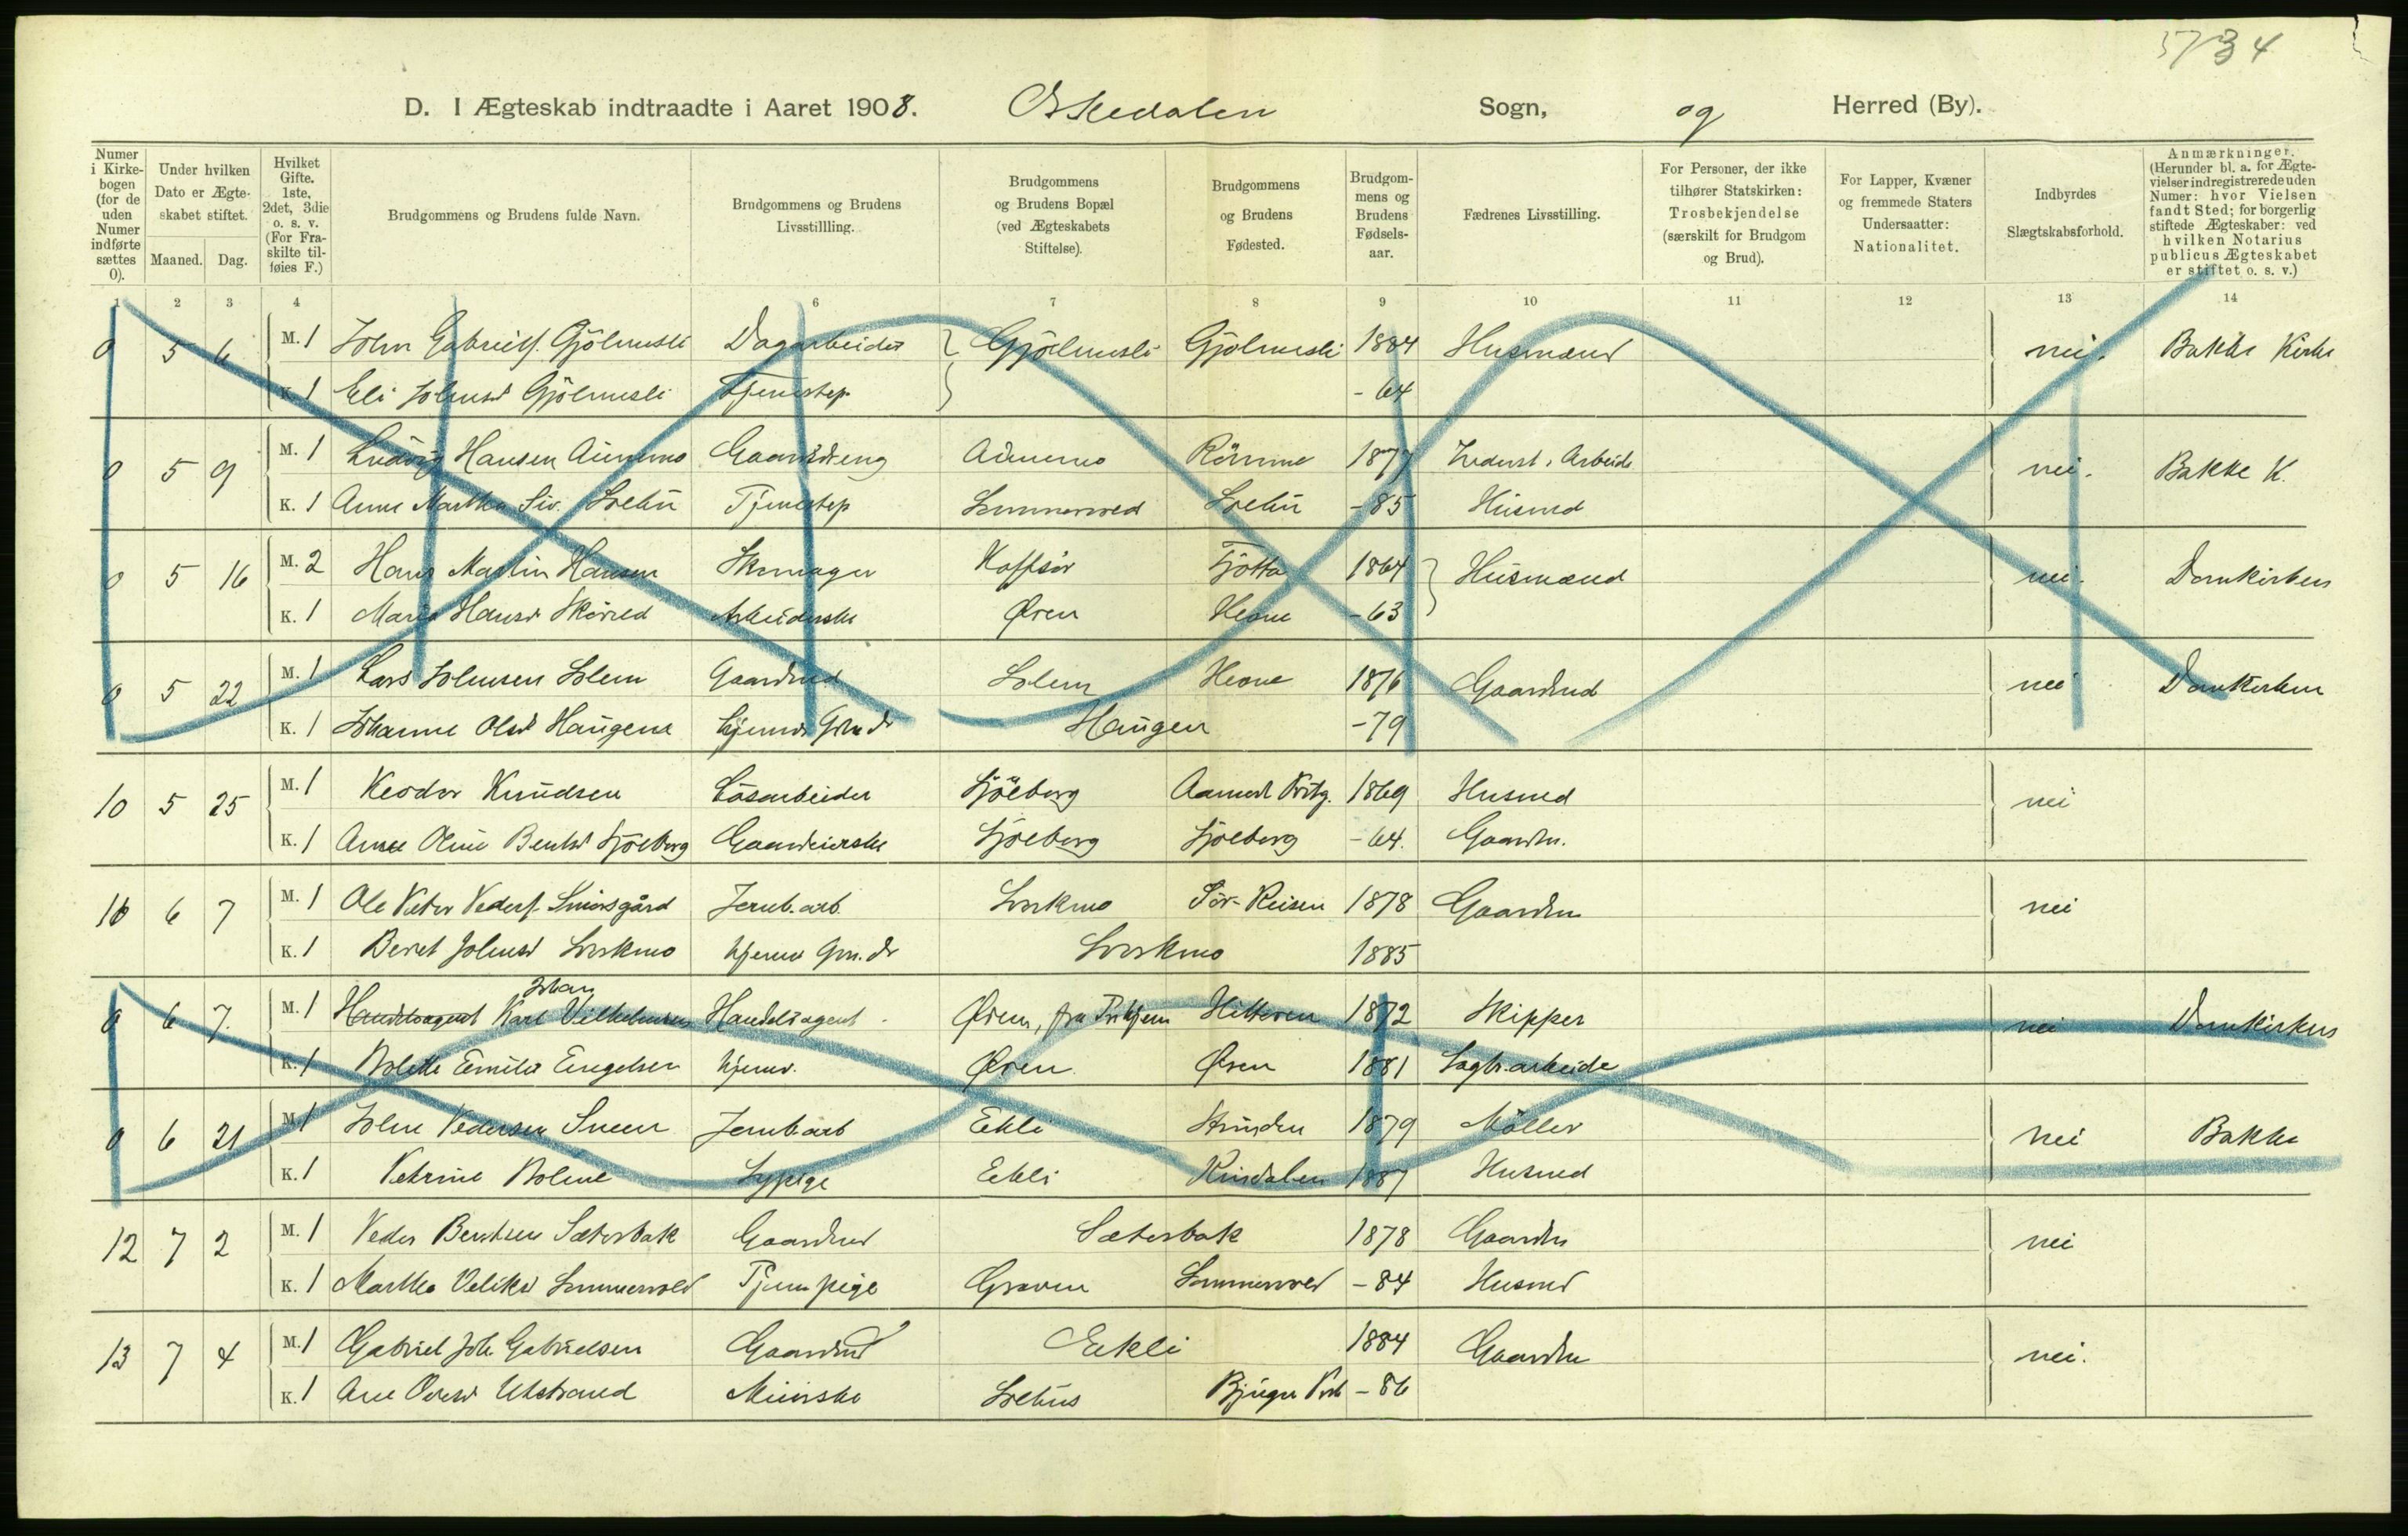 5734
D. I Ægteskab indtraadte i Aaret 1908. Orkedalen Sogn, og Herred (By).
Numer i Kirkebogen (for de uden Numer indførte sættes 0).
Under hvilken Dato er Ægteskabet stiftet.
Maaned. Dag.
Hvilket Gifte. 1ste, 2det, 3die o. s. v. (For Fraskilte tilføies F.)
Brudgommens og Brudens fulde Navn.
Brudgommens og Brudens Livsstillling.
Brudgommens og Brudens Bopæl (ved Ægteskabets Stiftelse).
Brudgommens og Brudens Fødested.
Brudgommens og Brudens Fødselsaar.
Fædrenes Livsstilling.
For Personer, der ikke tilhører Statskirken: Trosbekjendelse (særskilt for Brudgom og Brud).
For Lapper, Kvæner og fremmede Staters Undersaatter: Nationalitet.
Indbyrdes Slægtskabsforhold.
Anmærkninger. (Herunder bl. a. for Ægtevielser indregistrerede uden Numer: hvor Vielsen fandt Sted; for borgerlig stiftede Ægteskaber: ved hvilken Notarius publicus Ægteskabet er stiftet o. s. v.)
1 2 3 4 6 7 8 9 10 11 12 13 14
0 5 6 M. 1 John Gabrielf. Gjölmesli Dagarbeider Gjölmesli Gjölmesli 1884 Husmænd nei. Bakke Kirke
K. 1 Eli Johnsd Gjölmesli Tjenestep - 64
0 5 9 M. 1 Ludvig Hansen Aunemo Gaardsdreng Aunemo Römme 1877 Arbeid nei. Bakke K.
K. 1 Anne Martha Siv. Solbu Tjenestep Sommervold -85 Husmd
0 5 16 M. 2 Hans Martin Hansen Skomager Tjötta 1864 Husmænd nei. Domkirken
K. 1 Maria Hansd Arbeiderske Øren Hevne -63
0 5 22 M. 1 Lars Johnsen Solem Gaardmd Solem Hevne 1876 Gaardmd nei Domkirken
K. 1 Johanne Olsd Haugene hjemv. Gmdr Haugen -79
10 5 25 M. 1 Peodor Knudsen Lösarbeider Sjöeborg 1869 Husmd nei
K. 1 Anne Oline Bentsd Sjöeborg Gaardeierske Sjöeborg Sjöeborg -64. Gaardm.
10 6 7 M. 1 Ole Peter Pedersf. Jernb. arb. Sorkmo Sör-Reisen 1878 Gaardm nei
K. 1 Beret Johnsd Sorkmo hjemv Gm. dr Sorkmo 1885
0 6 7. M. 1 Handelsagent Karl Johan Vilhelmsen Handelsagent Øren, fra Trhjem Hitteren 1872 Skipper nei Domkirken
K. 1 Bolette Emilie Engelsen hjemv. Øren Øren 1881 Sagbr. arbeide
0 6 21 M. 1 John Pedersen Sneen Jernb. arb Ekli Strinden 1879 Möller nei Bakke
K. 1 Petrine Bolme Sypige Ekli Rindalen 1887 Husmd
12 7 2 M. 1 Peder Berntsen Sæterbak Gaardmd Sæterbak 1878 Gaardm nei
K. 1 Martha Sommervold Tjen. pige Groven Sommervold -84 Husmd
13 7 4 M. 1 Gabriel Joh. Gabrielsen Gaardmd Eekli 1884 Gaardm nei.
K. 1 Ane Utstrand Meierske Solbus -86